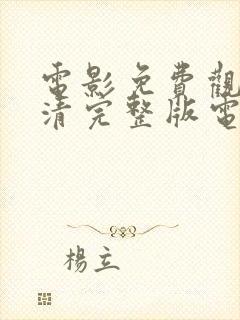 電影免費觀
清完整版電
楊立